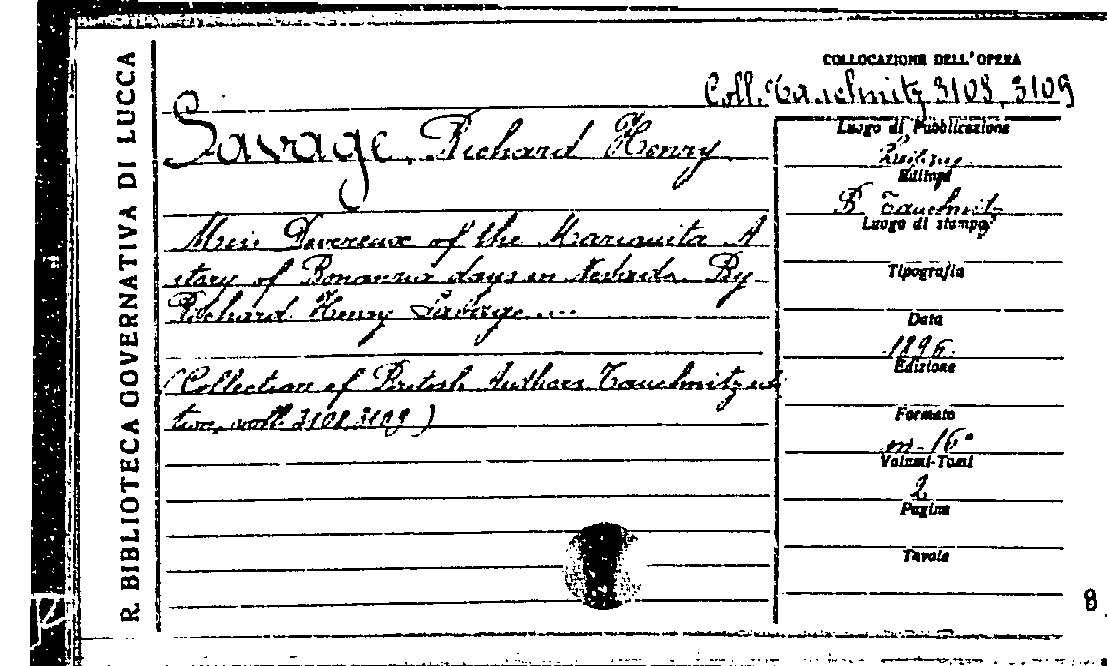 R. BIBLIOTECA GOVERNATIVA DI LUCCA
COLLOCAZIONE DELL'OPERA
Coll. Tauchnitz 3108, 3109
Savage, Richard Henry
Miss Devereux of the Mariquita A
story of Bonanza days in Nevada. By
Richard Henry Savage....
(Collection of British Authors Tauchnitz edi
tion, voll. 3108, 3109)
Luogo di Pubblicazione
Editore
B Tauchnitz
Luogo di stampa
Tipografia
Data
1896
Edizione
Formato
in-16°
Volumi-Tomi
2
Pagine
Tavole
8